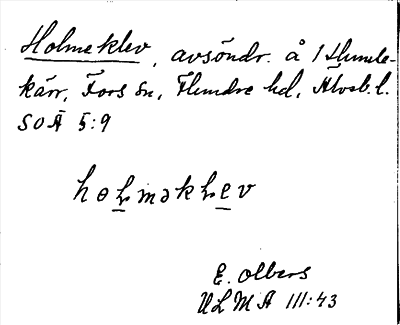 Holmeklev, avsöndr. å 1 Humle-
kärr, Fors sn, Flundre hd, Älvsb. l.
SOÄ 5:9
holməklev
E. Olbers
ULMA 111:43